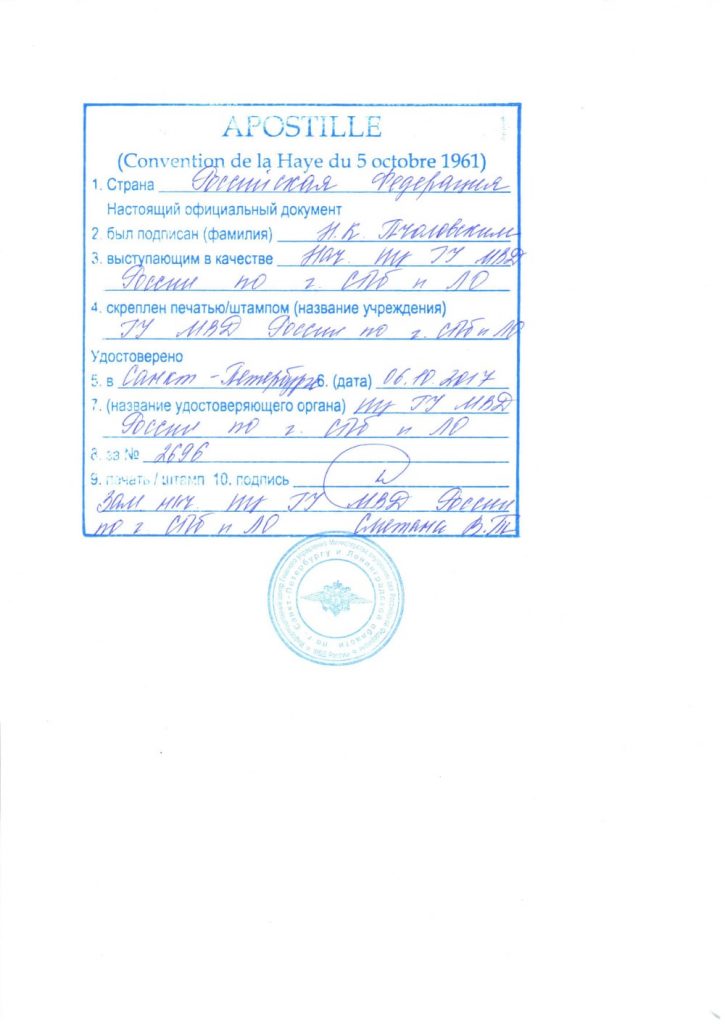 APOSTILLE
(Convention de la Haye du 5 octobre 1961)
1. Страна Российская Федерация
Настоящий официальный документ
2. был подписан (фамилия) Н.К. Пчоловским
3. выступающим в качестве Нач. ИЦ ГУ МВД
России по г. СПб и ЛО
4. скреплен печатью/штампом (название учреждения)
ГУ МВД России по г. СПб и ЛО
Удостоверено
5. в Санкт-Петербург 6. (дата) 06.10.2017
7. (название удостоверяющего органа) ИЦ ГУ МВД
России по г. СПб и ЛО
8. за № 2696
9. печать / штамп 10. подпись
Зам. нач. ИЦ ГУ МВД России
по г. СПб и ЛО Сметана В.Т.
по г. Санкт-Петербургу и Ленинградской области